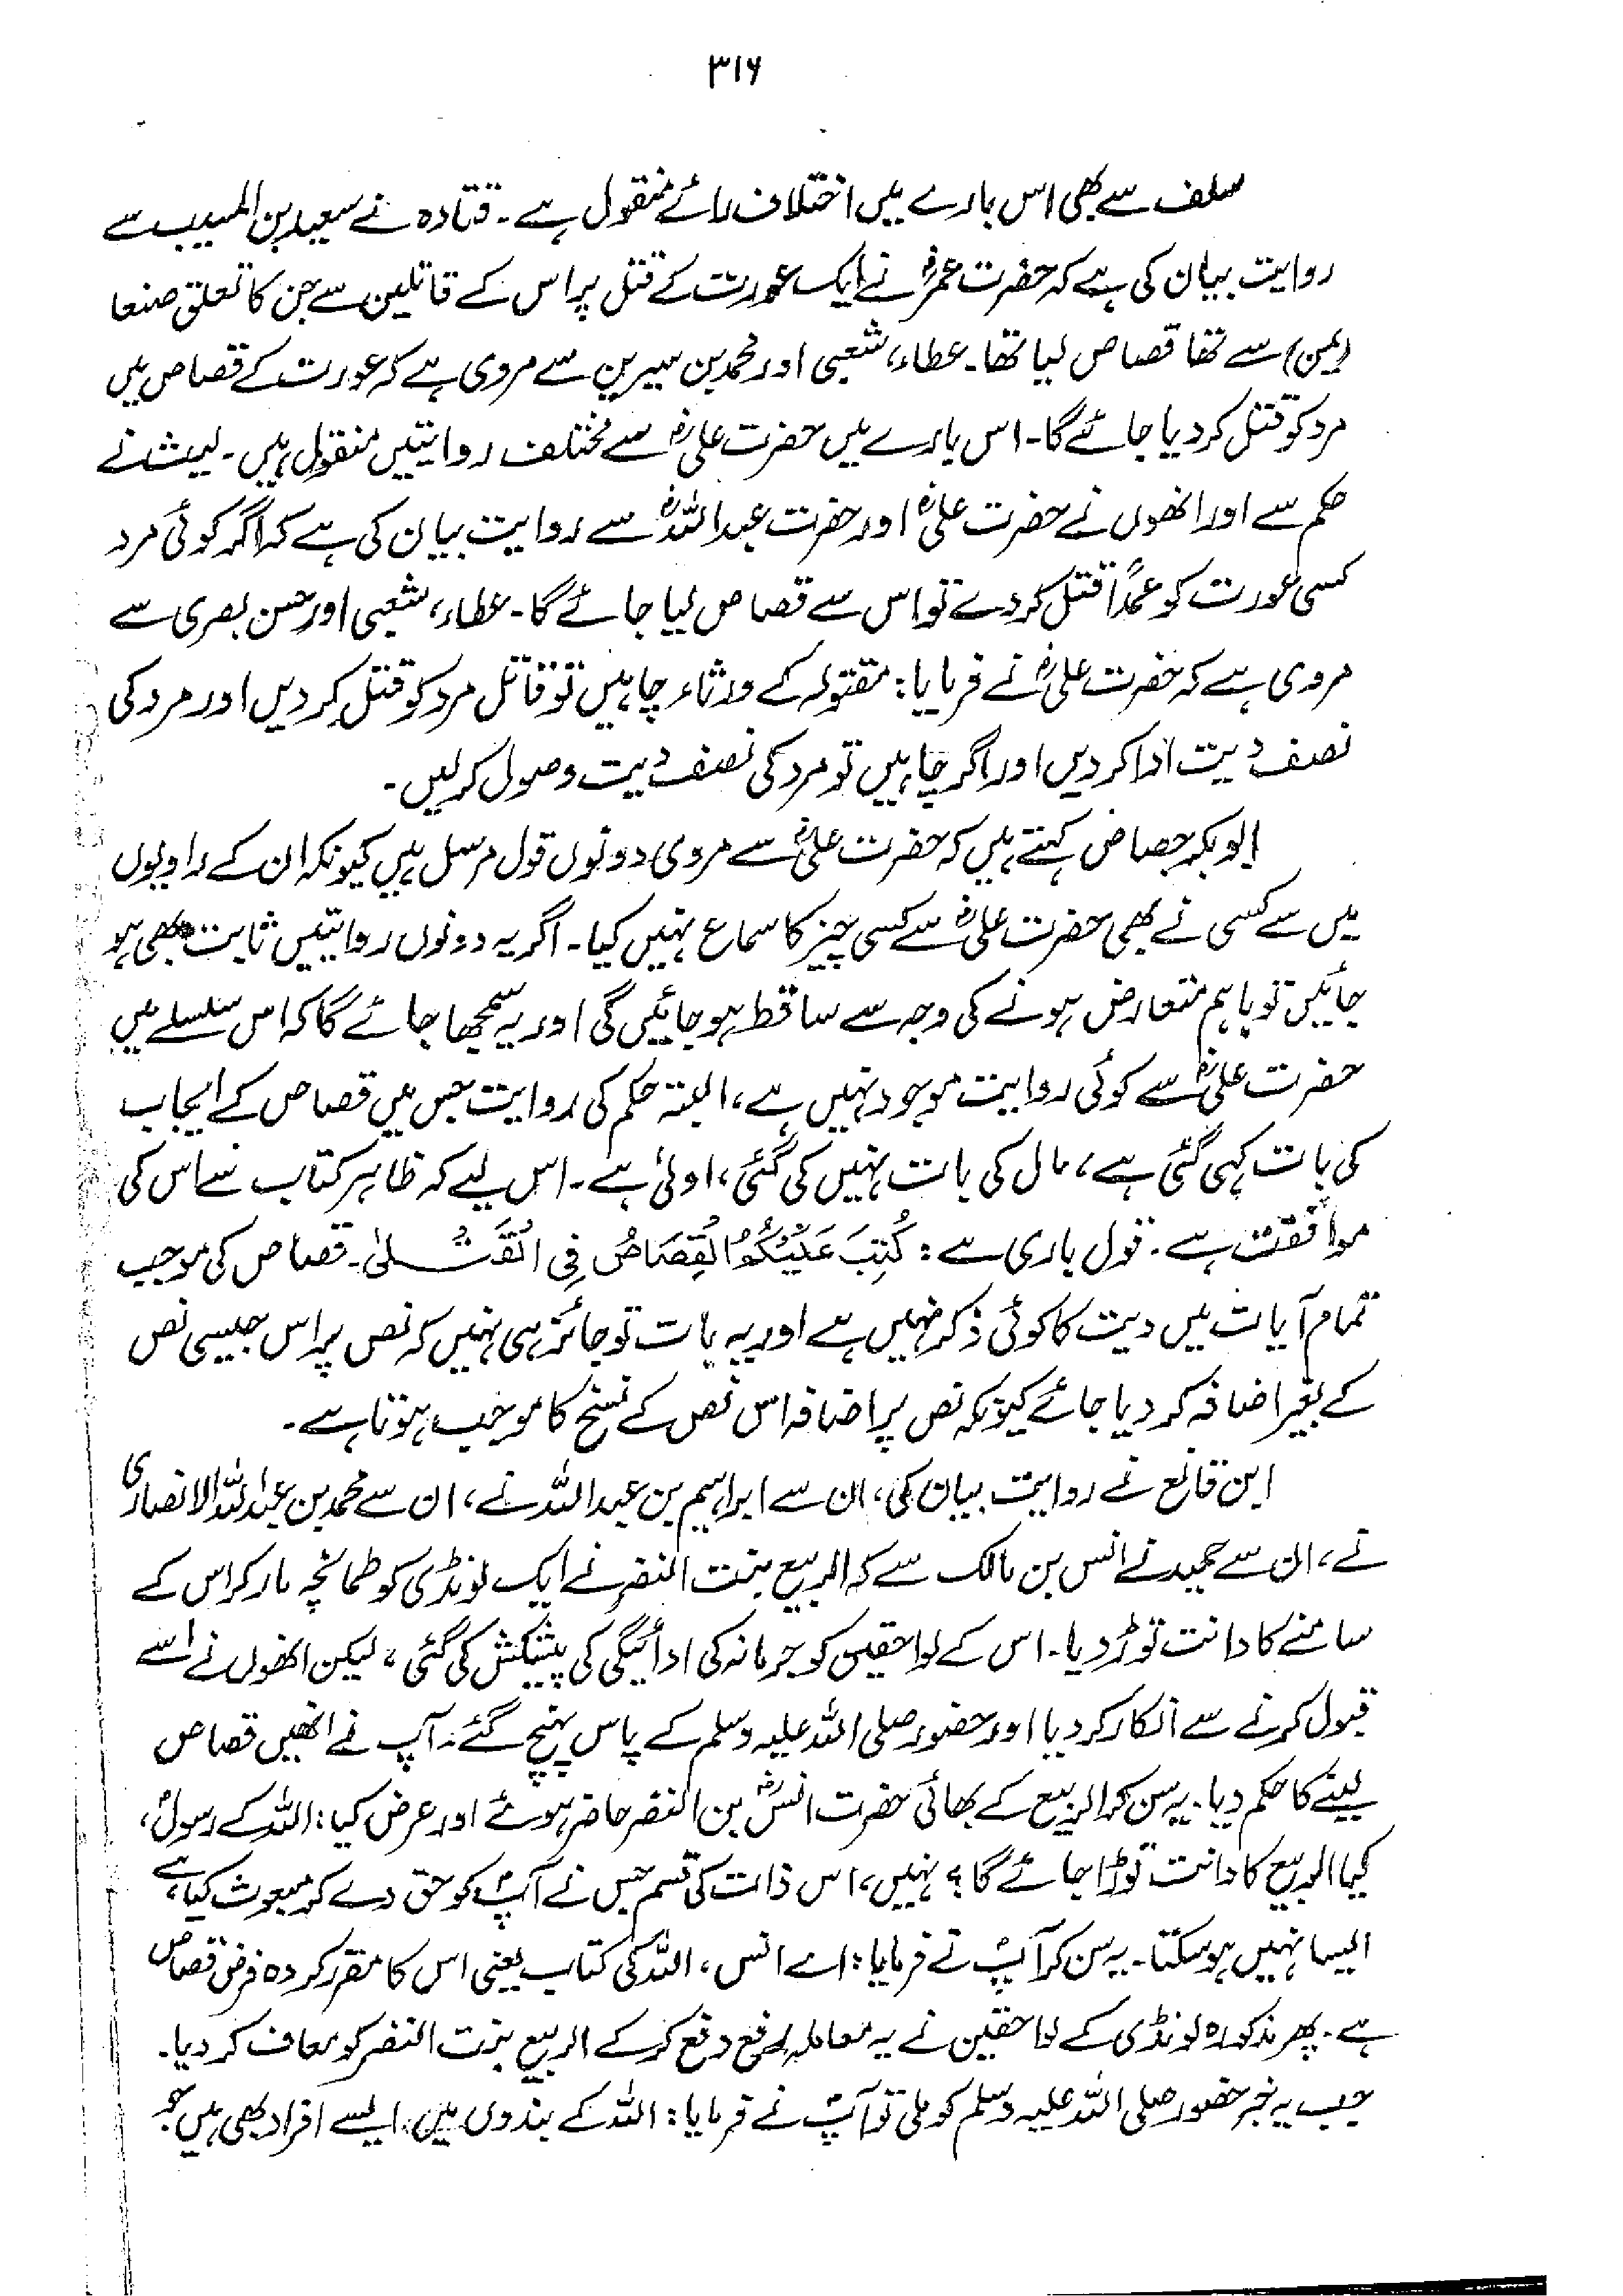 ۳۱۶
سلف سے بھی اس بارے میں اختلاف رائے منقول ہے۔ قتادہ نے سعید بن المسیب سے
روایت بیان کی ہے کہ حضرت عمرؓ نے ایک عورت کے قتل پر اس کے قاتلین سے جن کا تعلق صنعا
(یمن) سے تھا قصاص لیا تھا۔ عطاء، شعبی اور محمد بن سیرین سے مروی ہے کہ عورت کے قصاص میں
مرد کو قتل کر دیا جائے گا۔ اس بارے میں حضرت علیؓ سے مختلف روایتیں منقول ہیں۔ لیث نے
حکم سے اور انھوں نے حضرت علیؓ اور حضرت عبداللہؓ سے روایت بیان کی ہے کہ اگر کوئی مرد
کسی عورت کو عمداً قتل کر دے تو اس سے قصاص لیا جائے گا۔ عطاء، شعبی اور حسن بصری سے
مروی ہے کہ حضرت علیؓ نے فرمایا: مقتولہ کے ورثاء چاہیں تو قاتل مرد کو قتل کر دیں اور مرد کی
نصف دیت ادا کر دیں اور اگر چاہیں تو مرد کی نصف دیت وصول کر لیں۔
ابوبکر جصاص کہتے ہیں کہ حضرت علیؓ سے مروی دونوں قول مرسل ہیں کیونکہ ان کے راویوں
میں سے کسی نے بھی حضرت علیؓ سے کسی چیز کا سماع نہیں کیا۔ اگر یہ دونوں روایتیں ثابت بھی ہو
جائیں تو باہم متعارض ہونے کی وجہ سے ساقط ہو جائیں گی اور یہ سمجھا جائے گا کہ اس سلسلے میں
حضرت علیؓ سے کوئی روایت موجود نہیں ہے، البتہ حکم کی روایت جس میں قصاص کے ایجاب
کی بات کہی گئی ہے، مال کی بات نہیں کی گئی، اولیٰ ہے۔ اس لیے کہ ظاہر کتاب سے اس کی
موافقت ہے۔ قول باری ہے: كُتِبَ عَلَيْكُمُ الْقِصَاصُ فِي الْقَتْلىٰ۔ قصاص کی موجب
تمام آیات میں دیت کا کوئی ذکر نہیں ہے اور یہ بات تو جائز ہی نہیں کہ نص پر اس جیسی نص
کے بغیر اضافہ کر دیا جائے کیونکہ نص پر اضافہ اس نص کے نسخ کا موجب ہوتا ہے۔
ابن قانع نے روایت بیان کی، ان سے ابراہیم بن عبداللہ نے، ان سے محمد بن عبداللہ الانصاری
نے، ان سے حمید نے انس بن مالک سے کہ الربیع بنت النضر نے ایک لونڈی کو طمانچہ مار کر اس کے
سامنے کا دانت توڑ دیا۔ اس کے لواحقین کو جرمانہ کی ادائیگی کی پیشکش کی گئی، لیکن انھوں نے اسے
قبول کرنے سے انکار کر دیا اور حضور صلی اللہ علیہ وسلم کے پاس پہنچ گئے۔ آپ نے انھیں قصاص
لینے کا حکم دیا۔ یہ سن کر الربیع کے بھائی حضرت انسؓ بن النضر حاضر ہوئے اور عرض کیا: اللہ کے رسولؐ،
کیا الربیع کا دانت توڑا جائے گا؟ نہیں، اس ذات کی قسم جس نے آپؐ کو حق دے کر مبعوث کیا ہے،
ایسا نہیں ہو سکتا۔ یہ سن کر آپؐ نے فرمایا: اے انس، اللہ کی کتاب یعنی اس کا مقرر کردہ فرض قصاص
ہے۔ پھر مذکورہ لونڈی کے لواحقین نے یہ معاملہ رفع دفع کر کے الربیع بنت النضر کو معاف کر دیا۔
جب یہ خبر حضور صلی اللہ علیہ وسلم کو ملی تو آپؐ نے فرمایا: اللہ کے بندوں میں ایسے افراد بھی ہیں جو